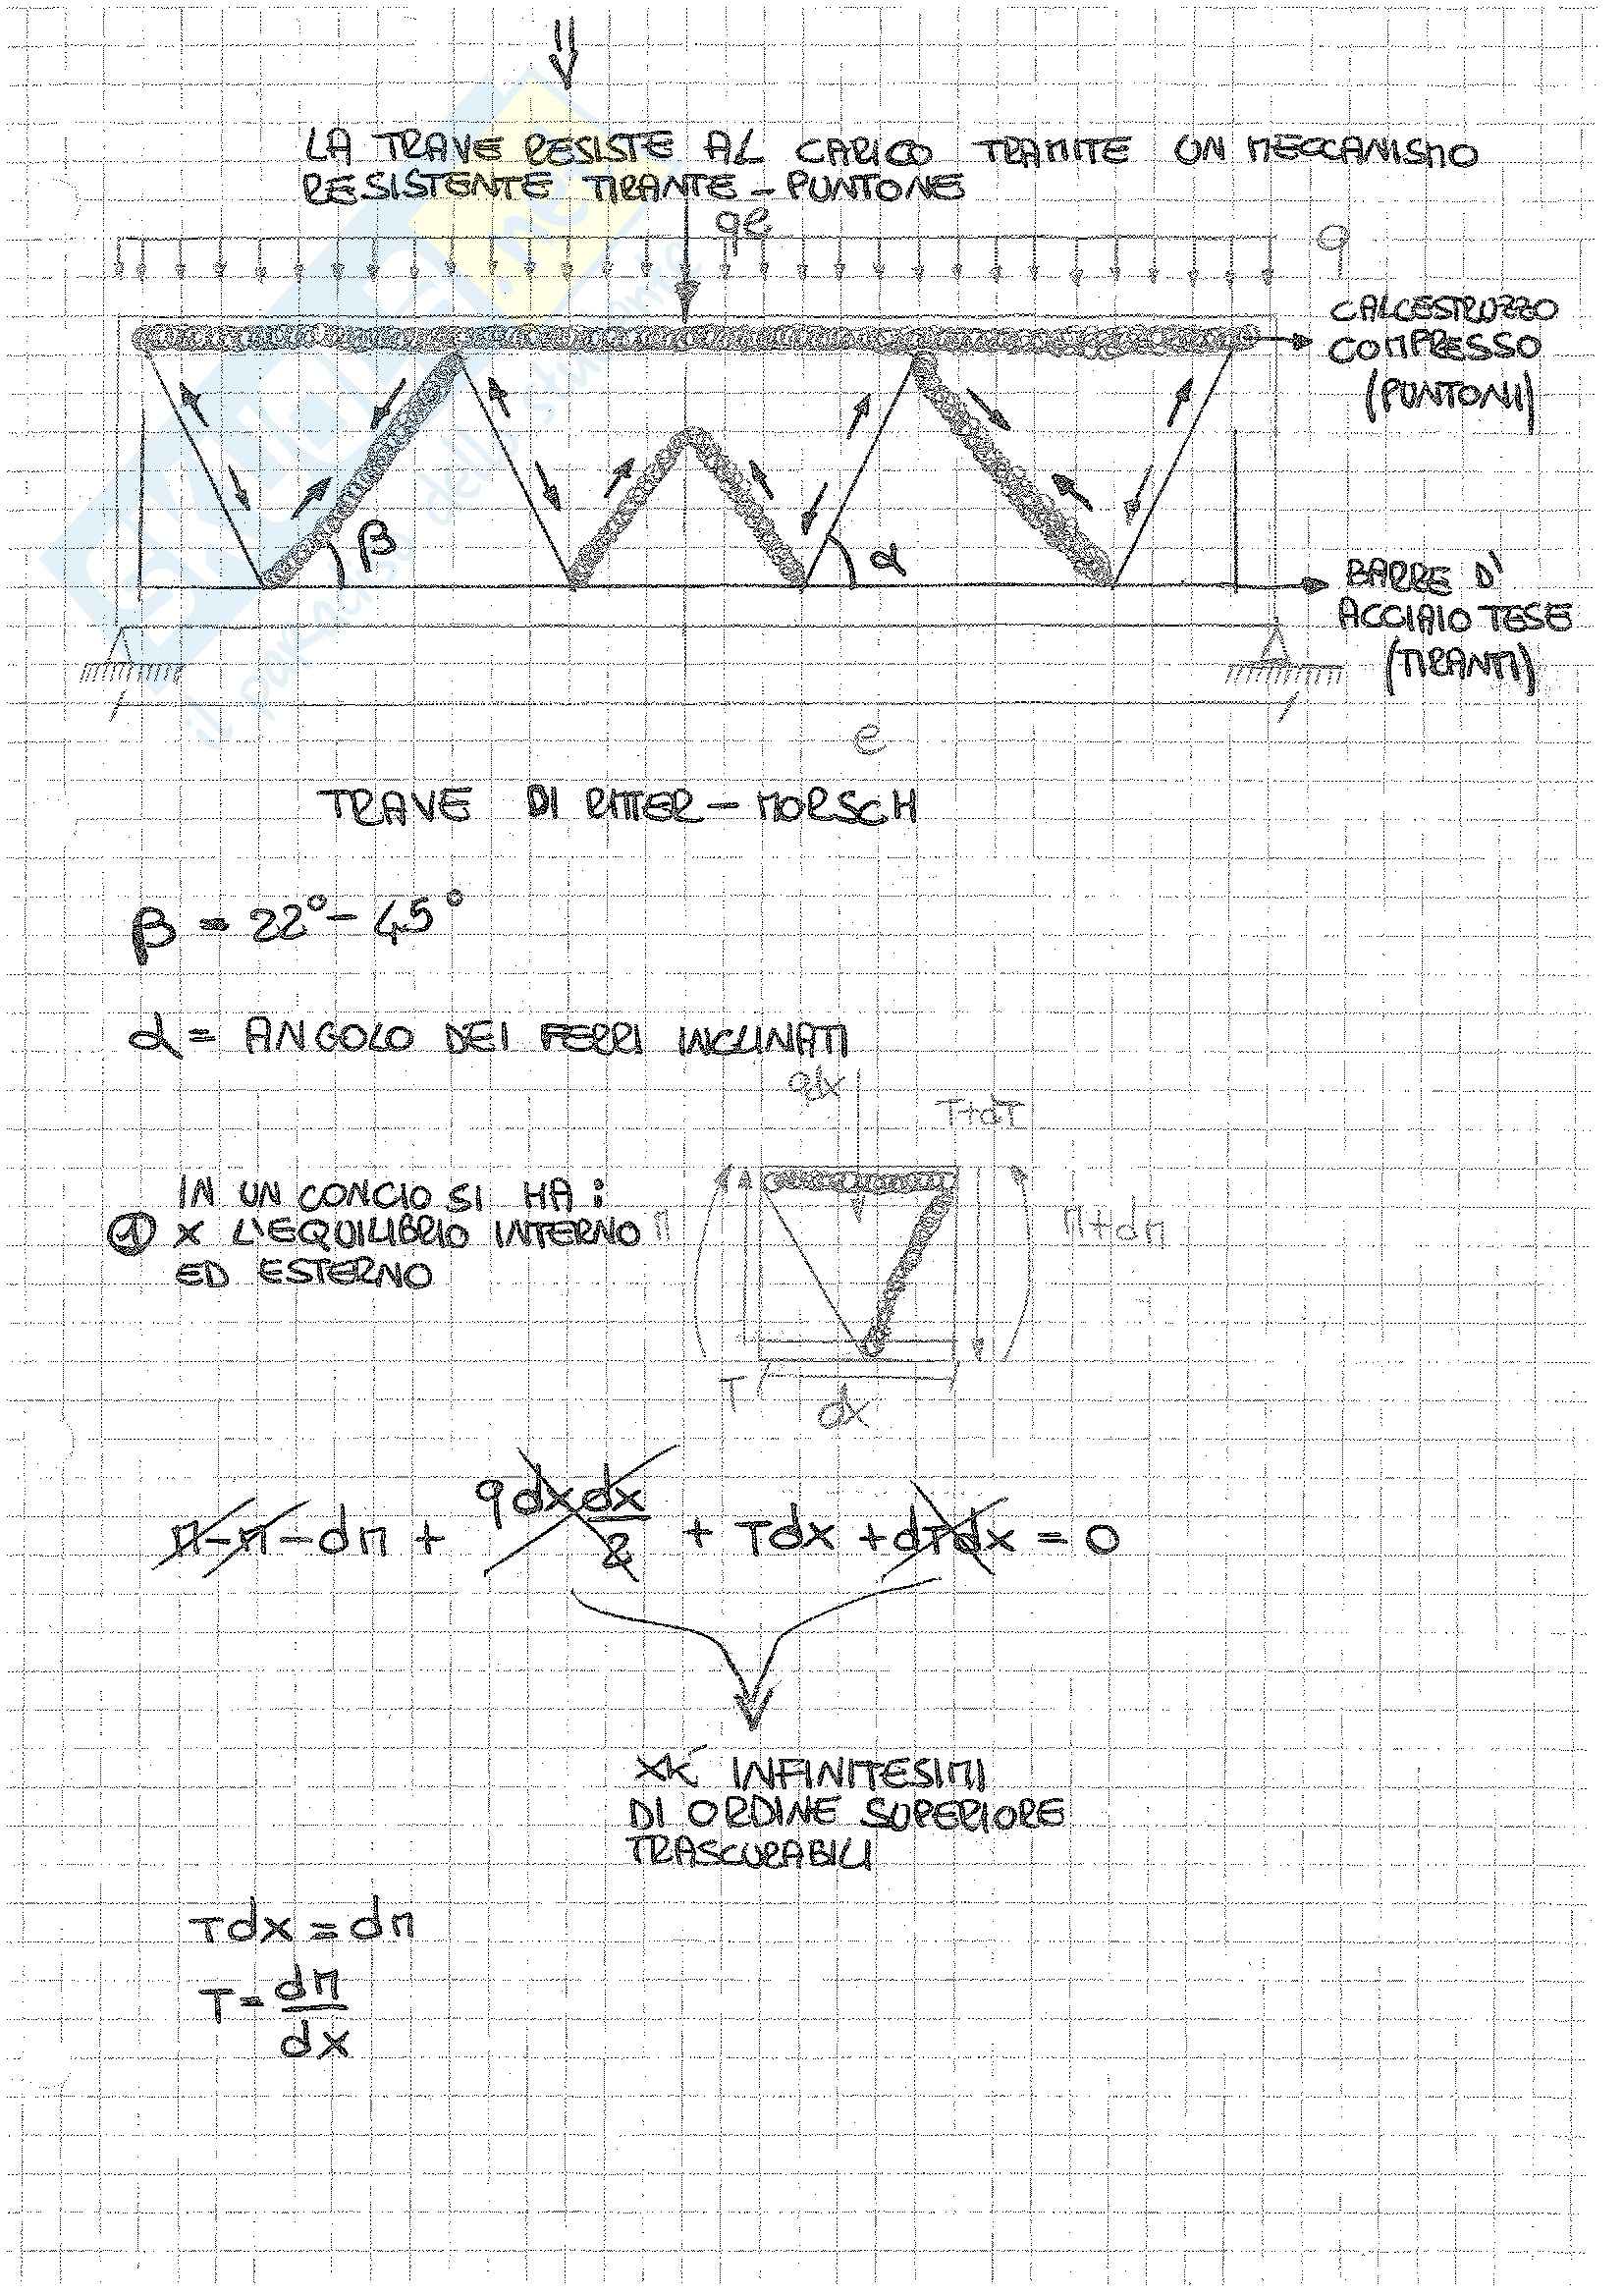 LA TRAVE RESISTE AL CARICO TRAMITE UN MECCANISMO
RESISTENTE TIRANTE - PUNTONE
qe
q
CALCESTRUZZO
COMPRESSO
(PUNTONI)
β
α
BARRE D'
ACCIAIO TESE
(TIRANTI)
e
TRAVE DI RITTER - MORSCH
β = 22° - 45°
α = ANGOLO DEI FERRI INCLINATI
qdx
T+dT
IN UN CONCIO SI HA:
① X L'EQUILIBRIO INTERNO
ED ESTERNO
M
M+dM
T
dx
M - M - dM + qdx dx/2 + Tdx + dTdx = 0
XK' INFINITESIMI
DI ORDINE SUPERIORE
TRASCURABILI
Tdx = dM
T = dM/dx